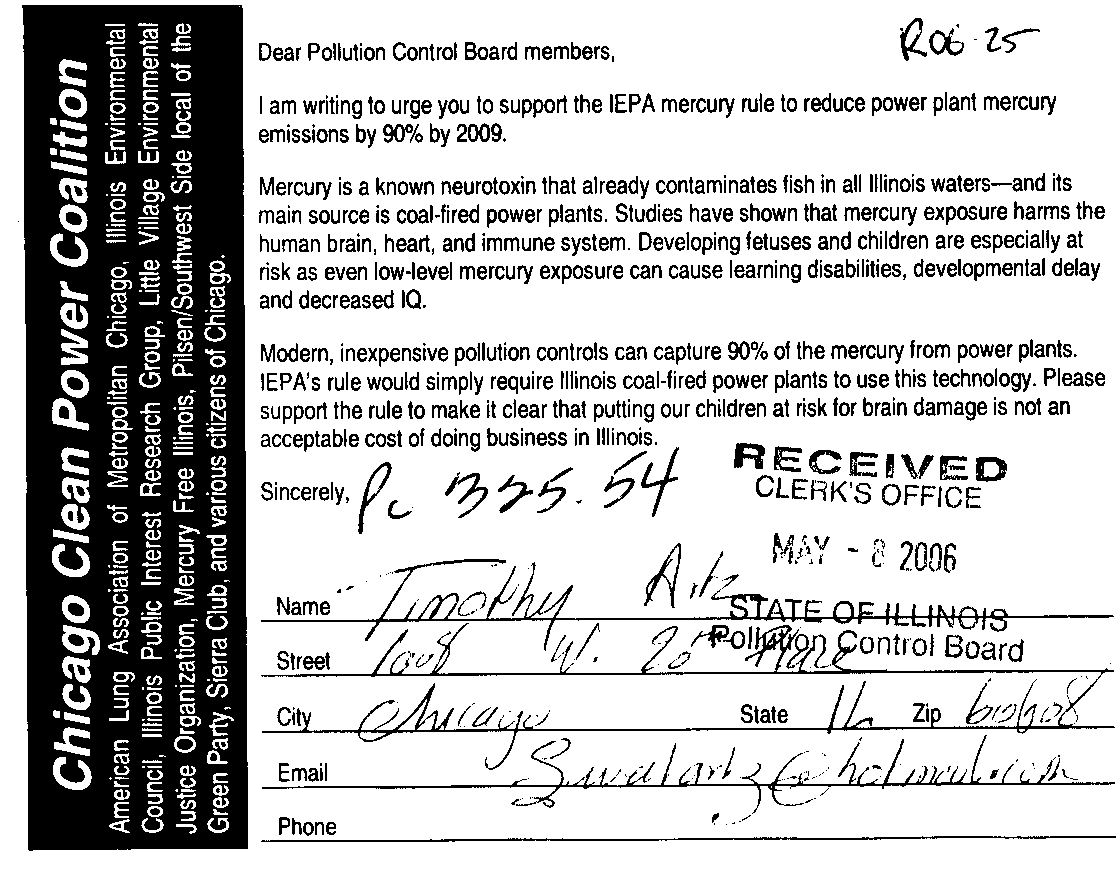 Chicago Clean Power Coalition
American Lung Association of Metropolitan Chicago, Illinois Environmental
Council, Illinois Public Interest Research Group, Little Village Environmental
Justice Organization, Mercury Free Illinois, Pilsen/Southwest Side local of the
Green Party, Sierra Club, and various citizens of Chicago.
R06-25
Dear Pollution Control Board members,
I am writing to urge you to support the IEPA mercury rule to reduce power plant mercury
emissions by 90% by 2009.
Mercury is a known neurotoxin that already contaminates fish in all Illinois waters—and its
main source is coal-fired power plants. Studies have shown that mercury exposure harms the
human brain, heart, and immune system. Developing fetuses and children are especially at
risk as even low-level mercury exposure can cause learning disabilities, developmental delay
and decreased IQ.
Modern, inexpensive pollution controls can capture 90% of the mercury from power plants.
IEPA's rule would simply require Illinois coal-fired power plants to use this technology. Please
support the rule to make it clear that putting our children at risk for brain damage is not an
acceptable cost of doing business in Illinois.
Sincerely, Pc 325.54
RECEIVED
CLERK'S OFFICE
MAY - 8 2006
STATE OF ILLINOIS
Pollution Control Board
Name Timothy
Street 1008 W. 20th Place
City Chicago State IL Zip 60608
Email
Phone